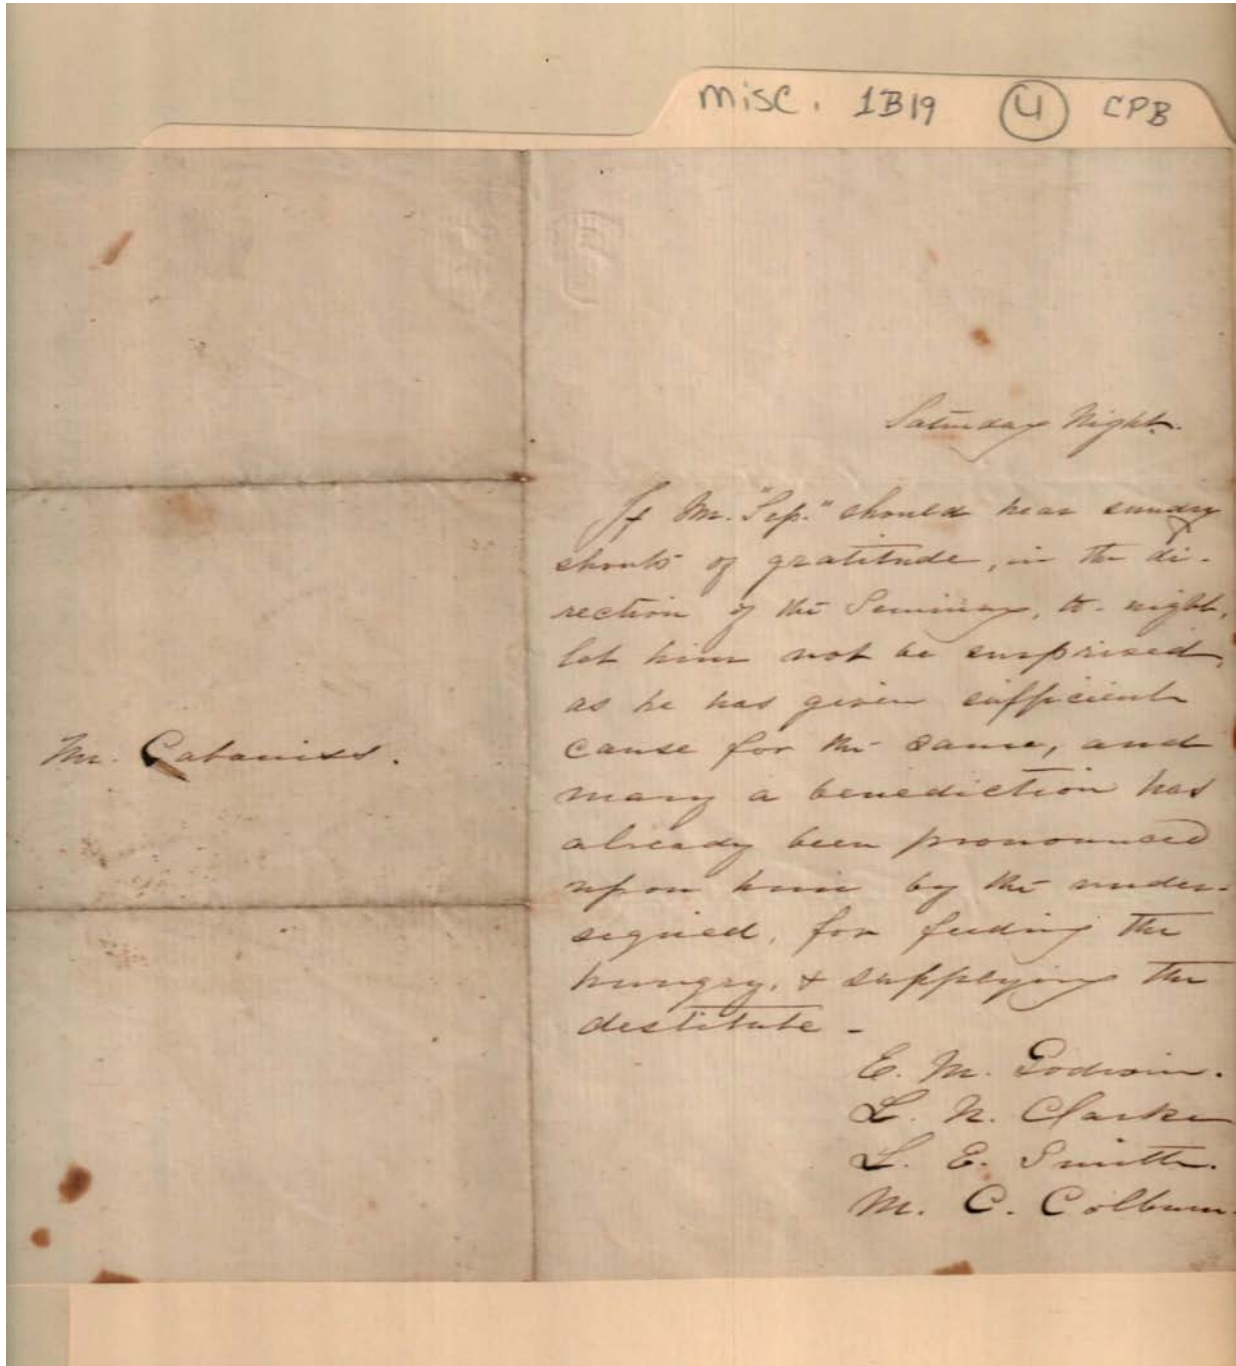 misc. 1B19 4 CPB
Saturday Night.
If Mr. "Sep." should hear sundry
shouts of gratitude, in the di-
rection of the Seminary, to-night,
let him not be surprised,
as he has given sufficient
cause for the same, and
many a benediction has
already been pronounced
upon him by the under-
signed, for feeding the
hungry, & supplying the
destitute -
E. M. Godwin.
L. N. Clarke
L. E. Smith.
M. C. Colburn.
Mr. Cabaniss.